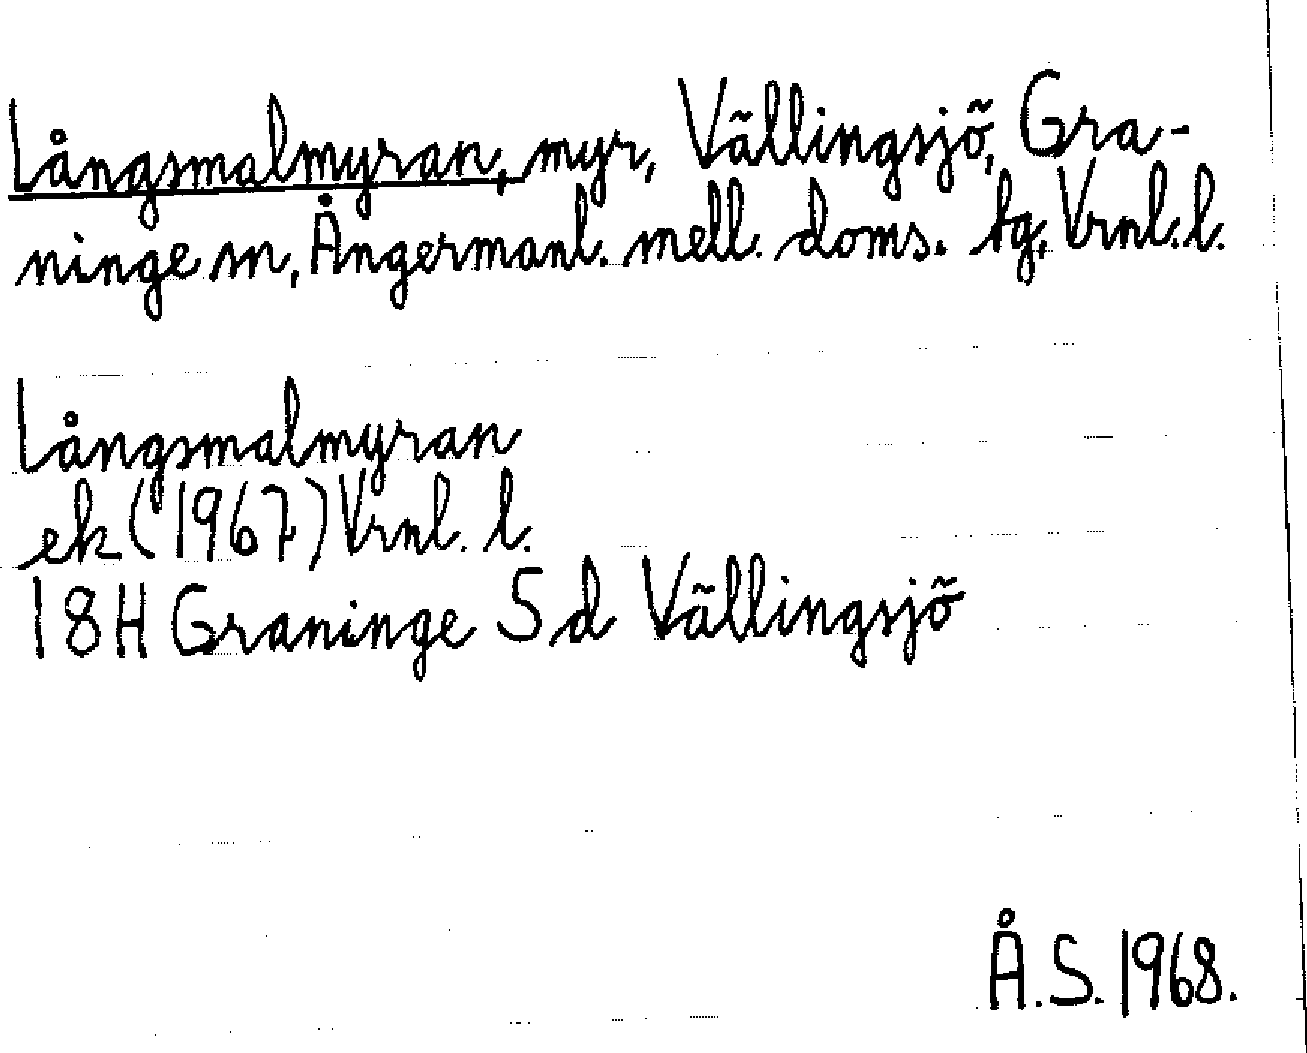 Långsmalmyran, myr, Vällingsjö, Gra-
ninge sn, Ångermanl. mell. doms. tg, Vrnl. l.
Långsmalmyran
ek (1967) Vrnl. l.
18H Graninge Sd Vällingsjö
Å.S. 1968.